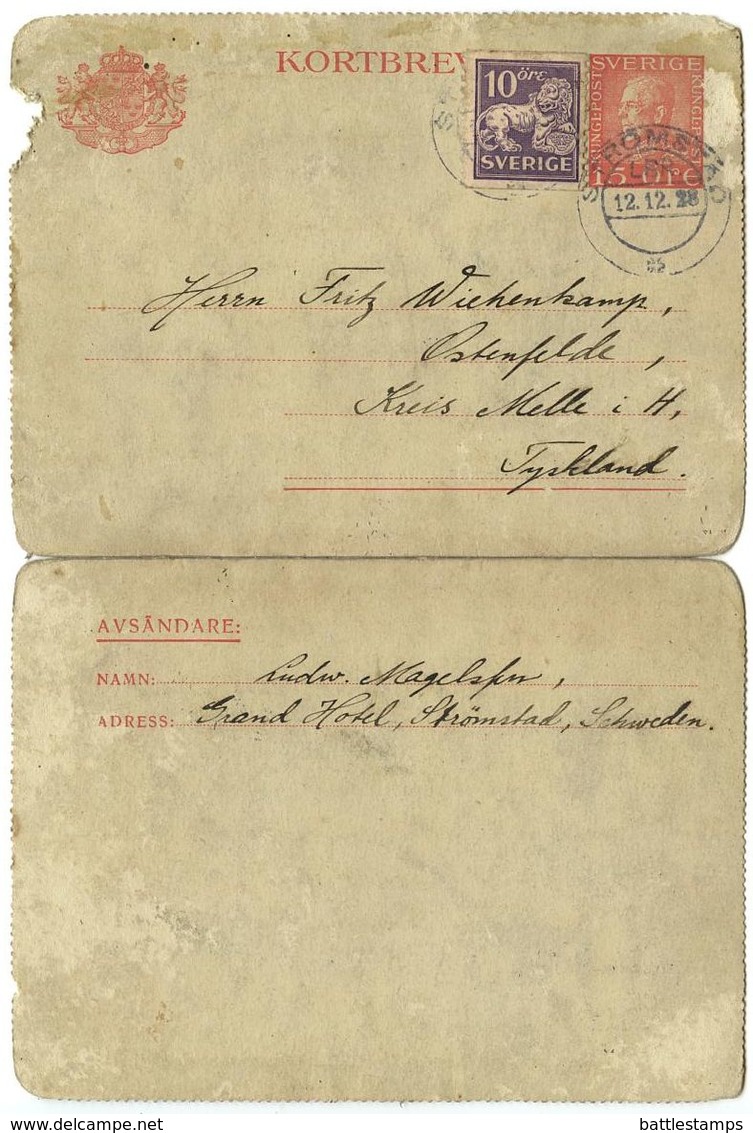 KORTBREV
10 öre
SVERIGE
SVERIGE
KUNGEPOST
15 ÖRE
STRÖMSTAD
LBR
12.12.28
Herrn Fritz Wiehenkamp,
Ostenfelde,
Kreis Melle i H,
Tyskland.
AVSÄNDARE:
NAMN: Ludw.
ADRESS: Grand Hotel, Strömstad, Schweden.
© Delcampe.net
battlestamps